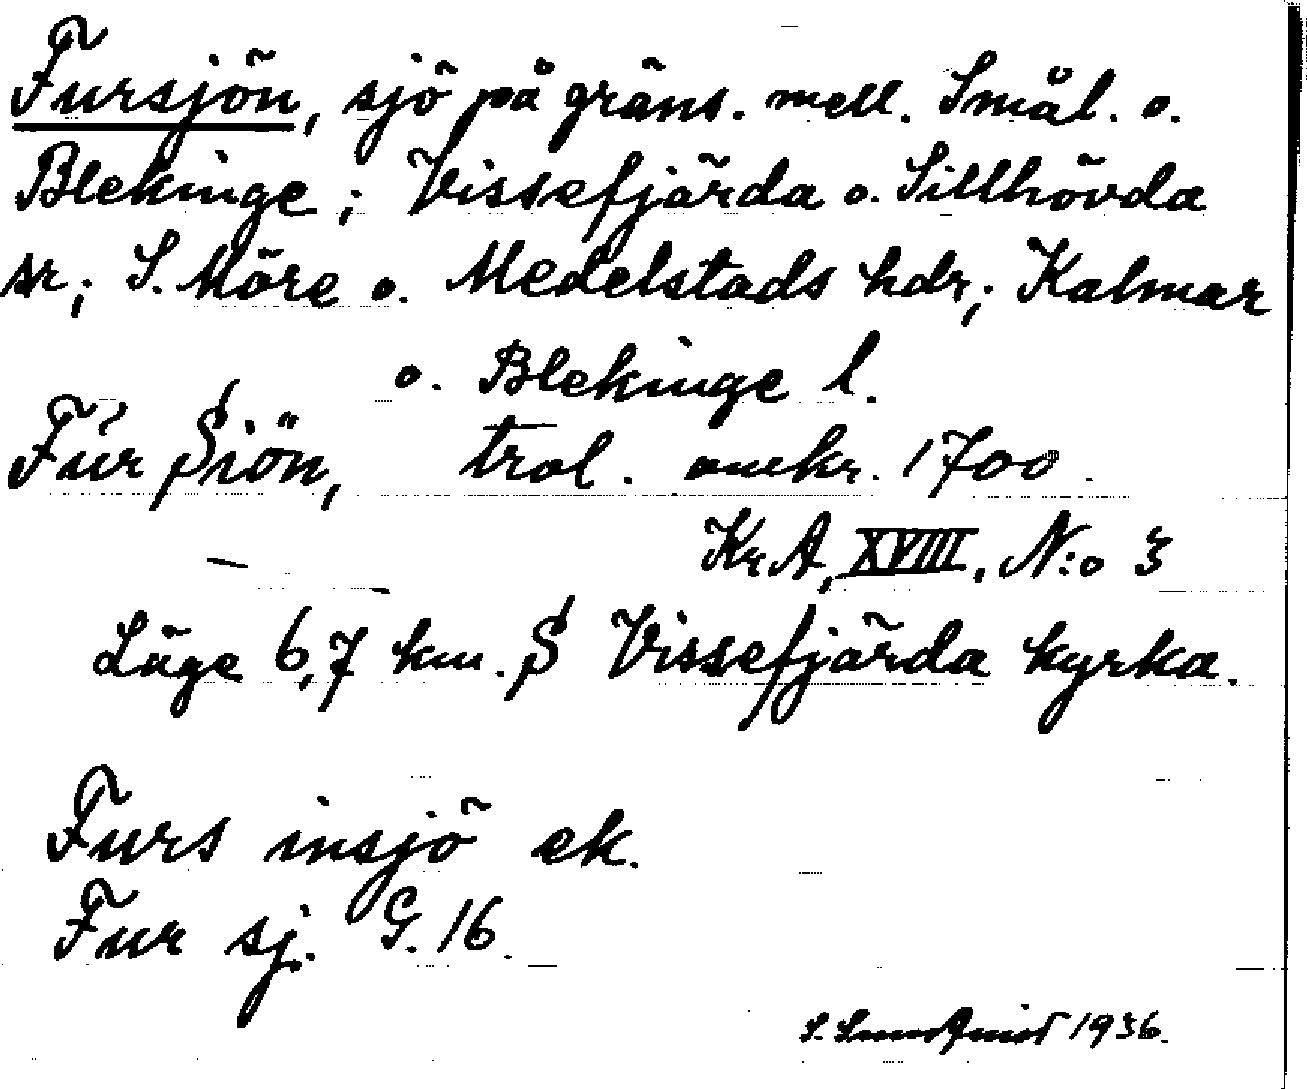 Fursjön, sjö på gräns. mell. Smål. o.
Blekinge; Vissefjärda o. Sillhövda
sr; S. Möre o. Medelstads hdr; Kalmar
o. Blekinge l.
Fúr Siön, trol. omkr. 1700.
Kr A, XVIII, N:o 3
Läge 6,7 km. S Vissefjärda kyrka.
Furs insjö ek.
Fur sj. G. 16.
S. Sundqvist 1936.